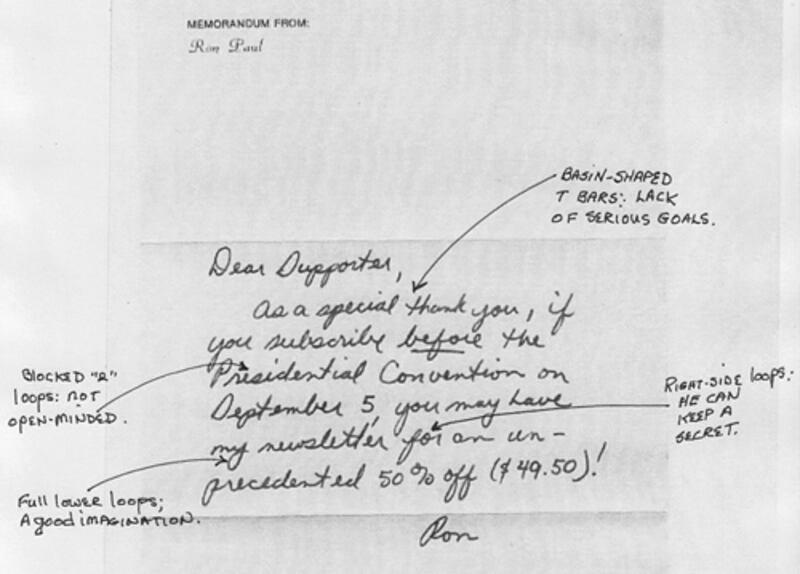 MEMORANDUM FROM:
Ron Paul
BASIN-SHAPED
T BARS: LACK
OF SERIOUS GOALS.
Dear Supporter,
As a special thank you, if
you subscribe before the
Presidential Convention on
September 5, you may have
my newsletter for an un-
precedented 50% off ($49.50)!
Ron
BLOCKED "e"
loops: NOT
OPEN-MINDED.
RIGHT-SIDE loops:
HE CAN
KEEP A
SECRET.
Full lower loops;
A good IMAGINATION.